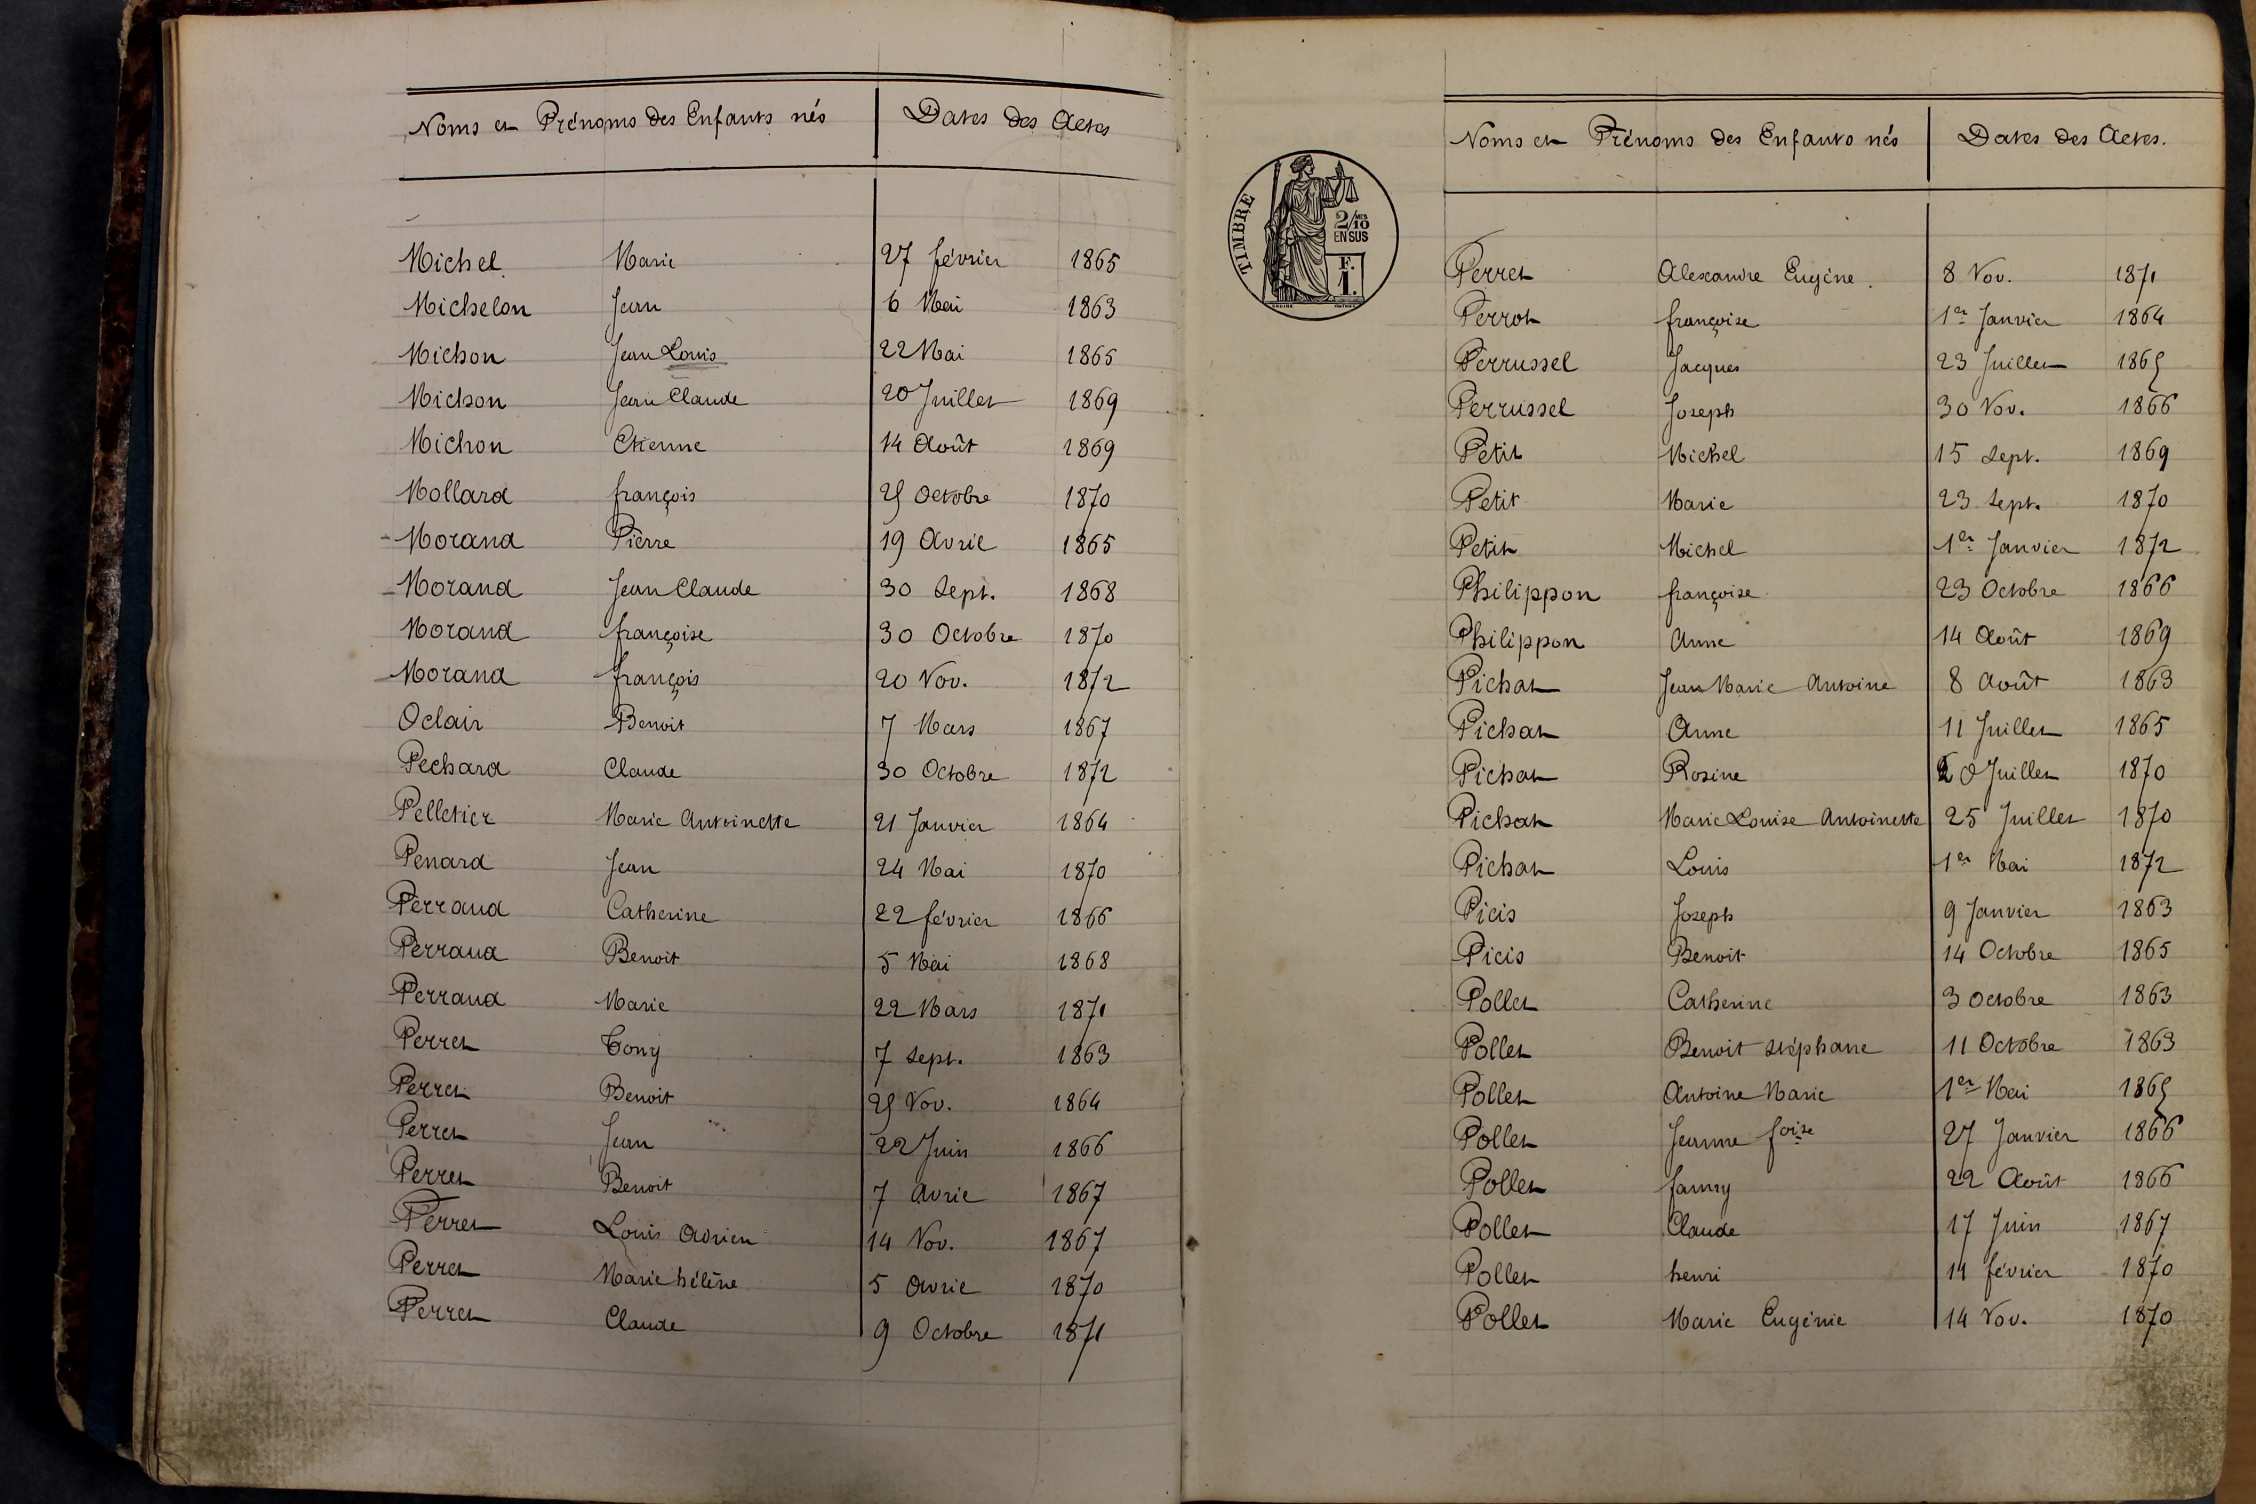 Noms et Prénoms des Enfants nés Dates des Actes
Michel Marie 27 février 1865
Michelon Jean 6 Mai 1863
Michon Jean Louis 22 Mai 1865
Michon Jean Claude 20 Juillet 1869
Michon Etienne 14 Août 1869
Mollard françois 25 Octobre 1870
Morand Pierre 19 Avril 1865
Morand Jean Claude 30 Sept. 1868
Morand françoise 30 Octobre 1870
Morand françois 20 Nov. 1872
Oclair Benoit 7 Mars 1867
Pechard Claude 30 Octobre 1872
Pelletier Marie Antoinette 21 Janvier 1864
Penard Jean 24 Mai 1870
Perraud Catherine 22 février 1866
Perraud Benoit 5 Mai 1868
Perraud Marie 22 Mars 1871
Perret Tony 7 Sept. 1863
Perret Benoit 25 Nov. 1864
Perret Jean 22 Juin 1866
Perret Benoit 7 Avril 1867
Perret Louis Adrien 14 Nov. 1867
Perret Marie hélène 5 Avril 1870
Perret Claude 9 Octobre 1871
TIMBRE
2/10 MES
EN SUS
F.
1.
Noms et Prénoms des Enfants nés Dates des Actes.
Perret Alexandre Eugène. 8 Nov. 1871
Perrot françoise 1er Janvier 1864
Perrussel Jacques 23 Juillet 1865
Perrussel Joseph 30 Nov. 1866
Petit Michel 15 Sept. 1869
Petit Marie 23 Sept. 1870
Petit Michel 1er Janvier 1872
Philippon françoise 23 Octobre 1866
Philippon Anne 14 Août 1869
Pichat Jean Marie Antoine 8 Août 1863
Pichat Anne 11 Juillet 1865
Pichat Rosine 20 Juillet 1870
Pichat Marie Louise Antoinette 25 Juillet 1870
Pichat Louis 1er Mai 1872
Picis Joseph 9 Janvier 1863
Picis Benoit 14 Octobre 1865
Pollet Catherine 3 Octobre 1863
Pollet Benoit Stéphane 11 Octobre 1863
Pollet Antoine Marie 1er Mai 1865
Pollet Jeanne foise 27 Janvier 1866
Pollet fanny 22 Août 1866
Pollet Claude 17 Juin 1867
Pollet henri 14 février 1870
Pollet Marie Eugénie 14 Nov. 1870